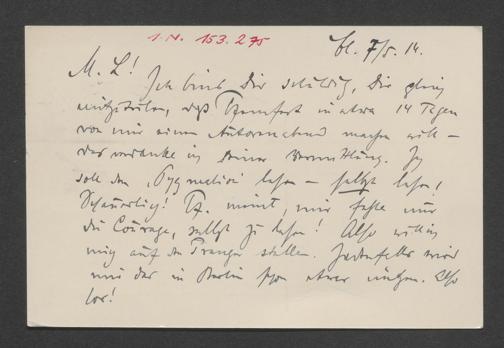 I.N. 153.275
Bl. 7/5. 14.
M. L.! Ich bins Dir schuldig, Dir gleich
mitzuteilen, daß Pfemfert in etwa 14 Tagen
von mir einen Autorenabend machen will –
das verdanke ich Deiner Vermittlung. Ich
soll den „Pygmalion" lesen – selbst lesen!
Schauerlich! Pf. meint, mir fehle nur
die Courage, selbst zu lesen! Also will ich
mich auf den Pranger stellen. Jedenfalls wird
mir das in Berlin schon etwas nützen. Also
los!